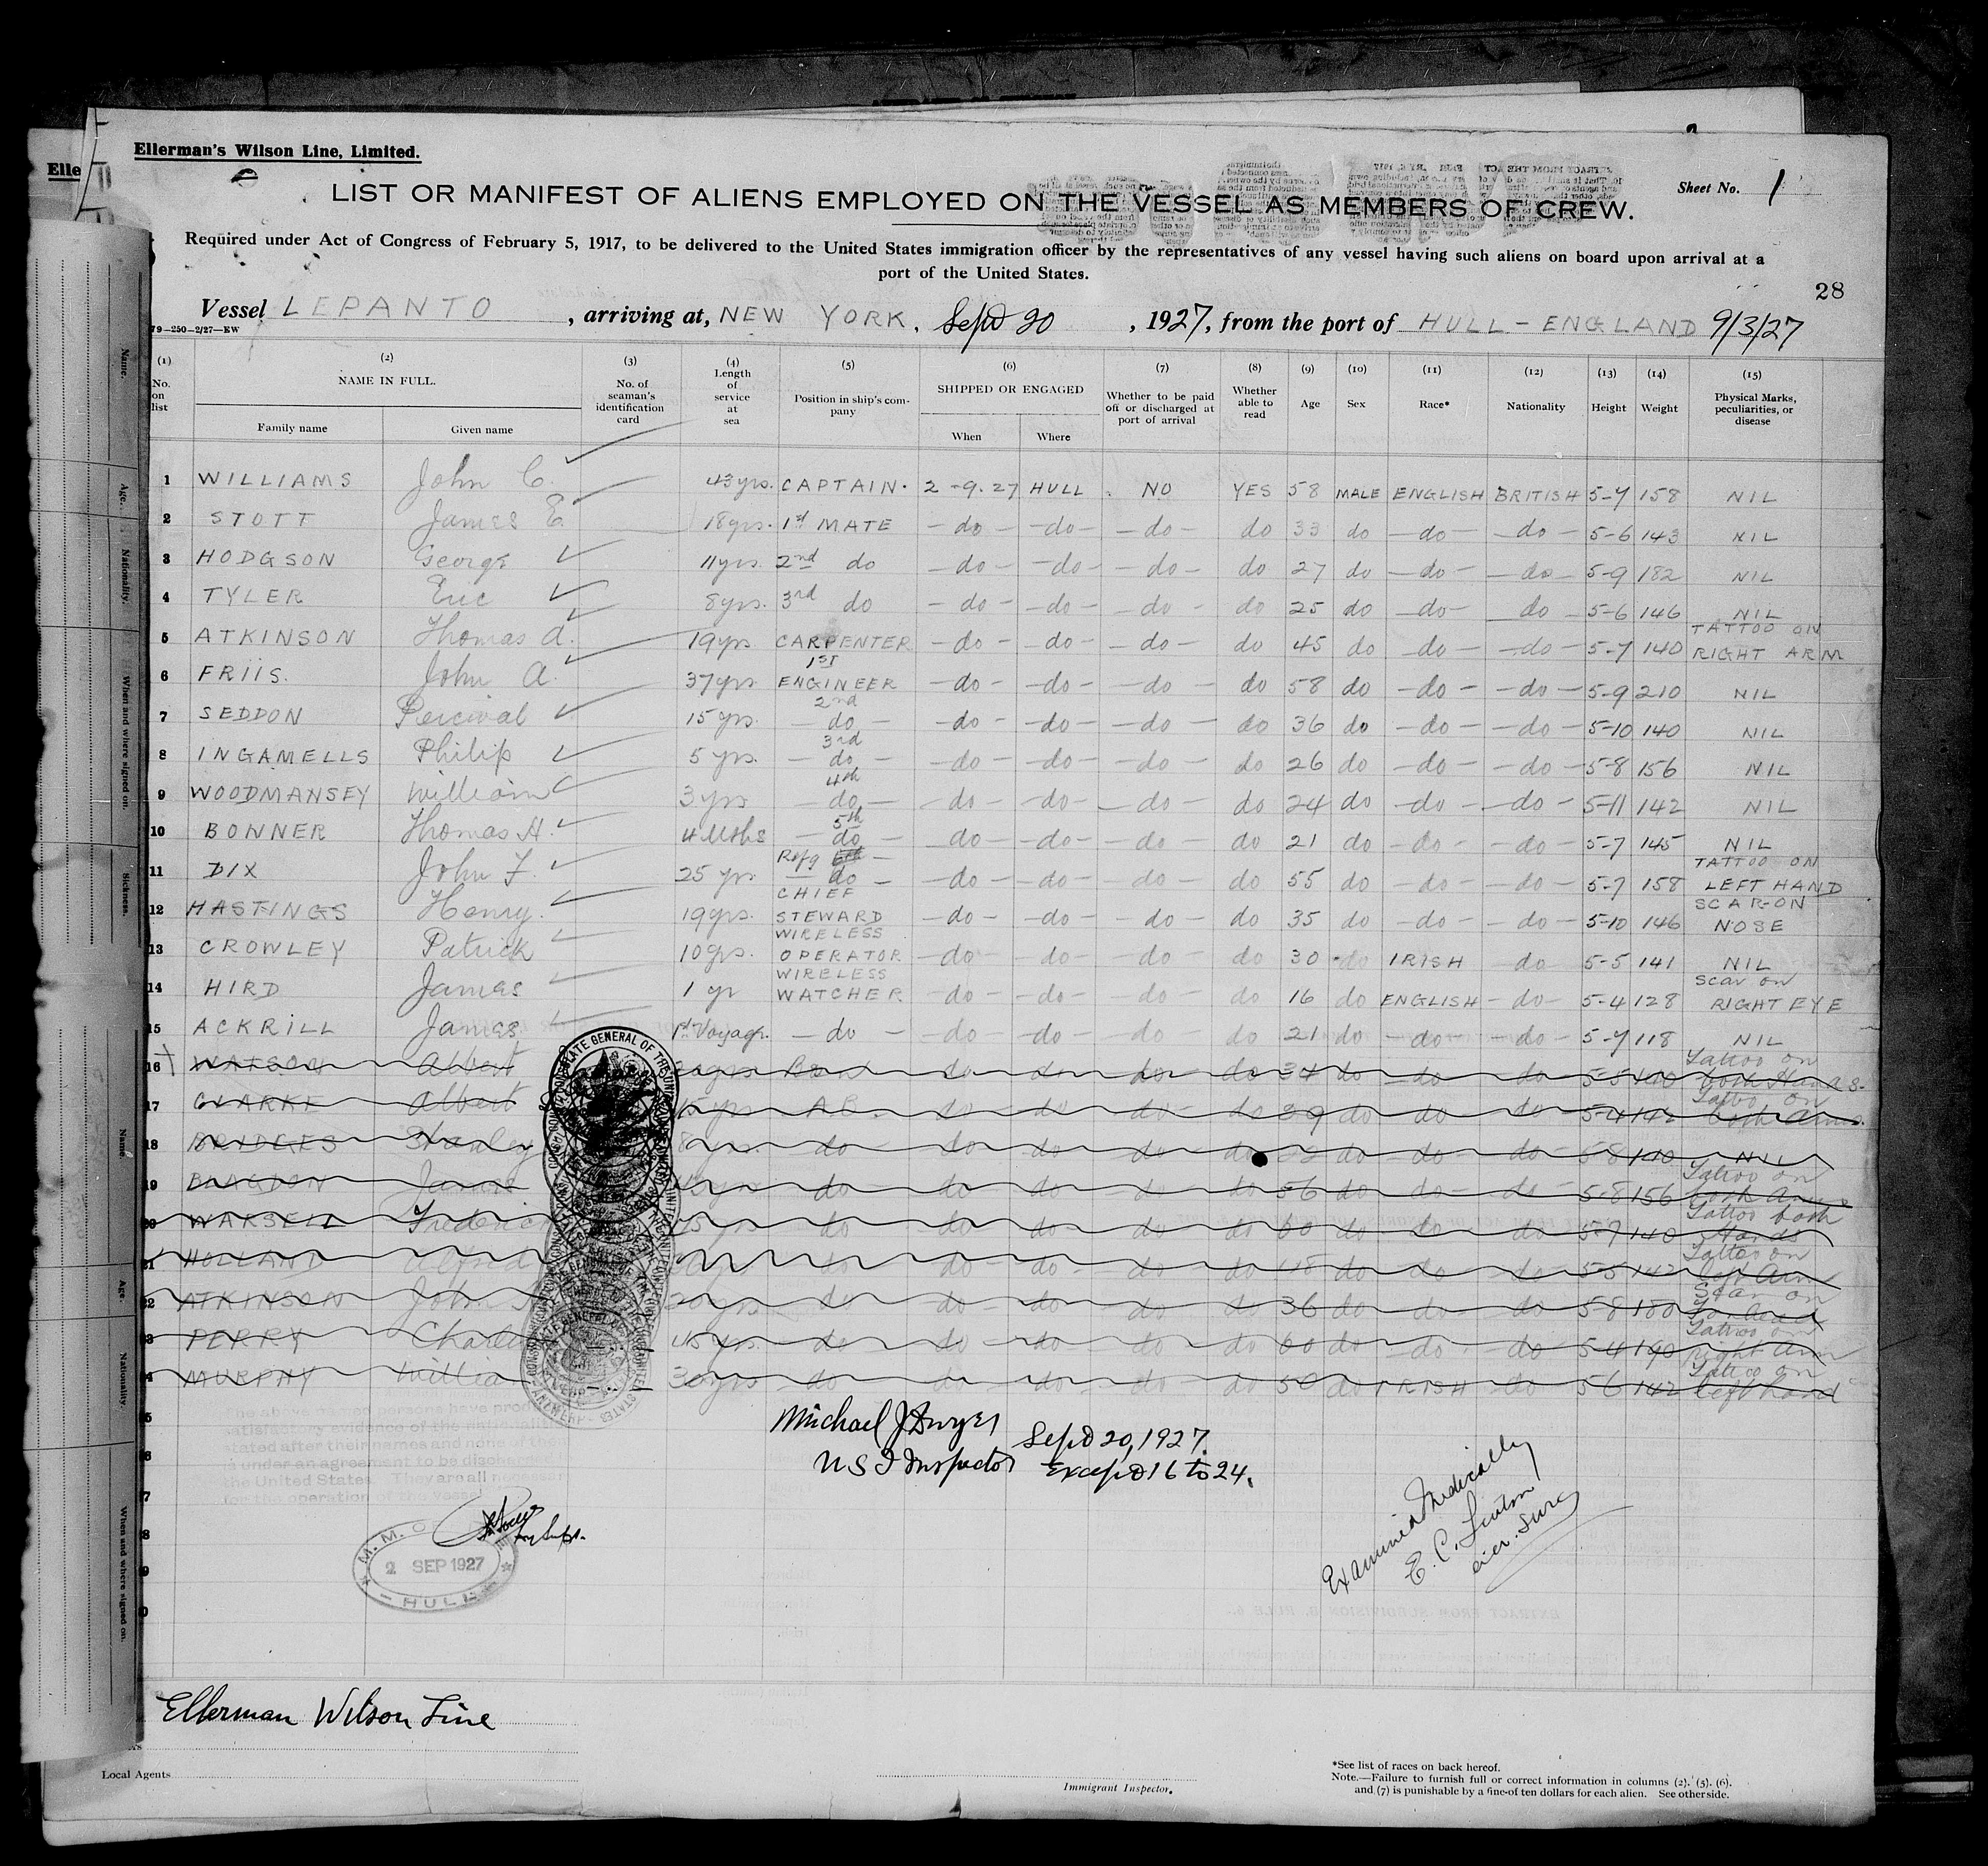 Ellerman's Wilson Line, Limited.
Elle
LIST OR MANIFEST OF ALIENS EMPLOYED ON THE VESSEL AS MEMBERS OF CREW.
Sheet No. 1
Required under Act of Congress of February 5, 1917, to be delivered to the United States immigration officer by the representatives of any vessel having such aliens on board upon arrival at a
port of the United States.
28
Vessel LEPANTO, arriving at, NEW YORK, Sept 20, 1927, from the port of HULL - ENGLAND 9/3/27
79-250-2/27-EW
(1) No. on list (2) NAME IN FULL. Family name Given name (3) No. of seaman's identification card (4) Length of service at sea (5) Position in ship's company (6) SHIPPED OR ENGAGED When Where (7) Whether to be paid off or discharged at port of arrival (8) Whether able to read (9) Age (10) Sex (11) Race* (12) Nationality (13) Height (14) Weight (15) Physical Marks, peculiarities, or disease
1 WILLIAMS John C. 43 yrs. CAPTAIN. 2-9.27 HULL. NO YES 58 MALE ENGLISH BRITISH 5-7 158 NIL
2 STOTT James E. 18 yrs. 1st MATE -do- -do- -do- do 33 do -do- -do- 5-6 143 NIL
3 HODGSON George 11 yrs. 2nd do -do- -do- -do- do 27 do -do- -do- 5-9 182 NIL
4 TYLER Eric 8 yrs. 3rd do -do- -do- -do- do 25 do -do- do 5-6 146 NIL
5 ATKINSON Thomas A. 19 yrs CARPENTER -do- -do- -do- do 45 do -do- -do- 5-7 140 TATTOO ON RIGHT ARM
6 FRIIS. John A. 37 yrs. 1ST ENGINEER -do- -do- -do- do 58 do -do- -do- 5-9 210 NIL
7 SEDDON Percival 15 yrs. 2nd -do- -do- -do- -do- do 36 do -do- -do- 5-10 140 NIL
8 INGAMELLS Philip 5 yrs. 3rd -do- -do- -do- -do- do 26 do -do- -do- 5-8 156 NIL
9 WOODMANSEY William 3 yrs 4th -do- -do- -do- -do- do 24 do -do- -do- 5-11 142 NIL
10 BONNER Thomas H. 4 Mths 5th -do- -do- -do- -do- do 21 do -do- -do- 5-7 145 NIL
11 DIX John F. 25 yrs Refg -do- -do- -do- -do- do 55 do -do- -do- 5-7 158 TATTOO ON LEFT HAND
12 HASTINGS Henry. 19 yrs. CHIEF STEWARD -do- -do- -do- do 35 do -do- -do- 5-10 146 SCAR-ON NOSE
13 CROWLEY Patrick 10 yrs. WIRELESS OPERATOR -do- -do- -do- do 30 do IRISH -do 5-5 141 NIL
14 HIRD James 1 yr WIRELESS WATCHER -do- -do- -do- do 16 do ENGLISH -do- 5-4 128 Scar on RIGHT EYE
15 ACKRILL James 1st Voyage. -do- -do- -do- -do do 21 do -do- -do- 5-7 118 NIL
16 WATSON Albert yrs do do do do 34 do do do 5-5 Tattoo on both Hands.
17 CLARKE Albert 15 yrs A.B. do do do do 39 do do do 5-4 142 Tattoo on both Arms.
18 BRIDGES Stanley 8 yrs. do do do do do do do do 5-8 140 NIL
19 BLAGDON James yrs do do do do do 56 do do do 5-8 156 Tattoo on both Arms
20 WARSELL Frederick yrs do do do do do 60 do do do 5-7 140 Tattoo both Hands
21 HOLLAND Alfred do do do do do 48 do do do 5-5 142 Tattoo on left Arm
22 ATKINSON John 20 yrs. do do do do do 36 do do do 5-8 180 Scar on forhead
23 PERRY Charles 45 yrs. do do do do do 60 do do do 5-4 190 Tattoo on right arm
24 MURPHY William 30 yrs do do do do do 50 do IRISH do 5 6 142 Tattoo on left hand
CONSULATE GENERAL OF THE UNITED STATES
ANTWERP
The above named persons have
satisfactory evidence of the nationalities
stated after their names and none of them
is under an agreement to be discharged in
the United States. They are all necessary
for the operation of the vessel
Michael J Dwyer Sept 20, 1927.
U S I Inspector Except 16 to 24.
Examined Medically
E. C.
M. M. O.
2 SEP 1927
HULL
Ellerman Wilson Line
Local Agents
Immigrant Inspector.
*See list of races on back hereof.
Note.—Failure to furnish full or correct information in columns (2). (5). (6).
and (7) is punishable by a fine of ten dollars for each alien. See other side.
Name.
Age.
Nationality.
When and where signed on.
Sickness.
Name.
Age.
Nationality.
When and where signed on.